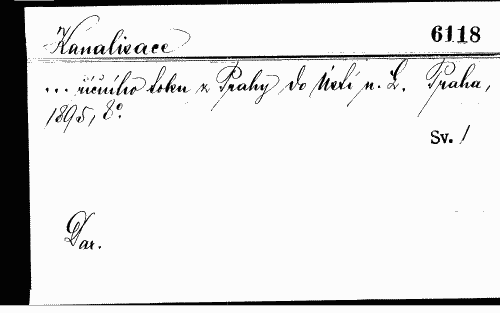 Kanalisace 6118
... říčního toku z Prahy do Ústí n. L. Praha,
1895, 8°.
Sv. 1
Dar.